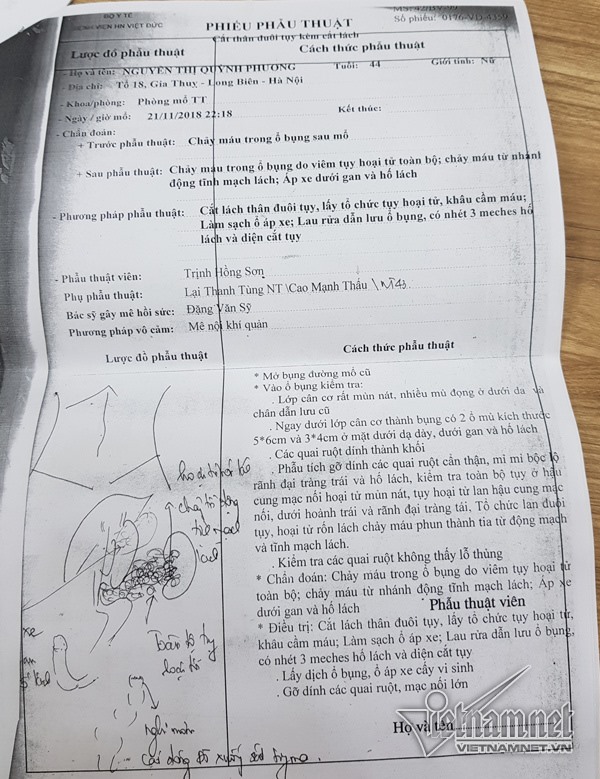 BỘ Y TẾ
BỆNH VIỆN HN VIỆT ĐỨC
PHIẾU PHẪU THUẬT
Số phiếu:
Cắt thân đuôi tụy kèm cắt lách
Lược đồ phẫu thuật
Cách thức phẫu thuật
- Họ và tên: NGUYỄN THỊ QUỲNH PHƯƠNG Tuổi: 44 Giới tính: Nữ
- Địa chỉ: Tổ 18, Gia Thuỵ - Long Biên - Hà Nội
- Khoa/phòng: Phòng mổ TT
- Ngày / giờ mổ: 21/11/2018 22:18 Kết thúc:
- Chẩn đoán:
+ Trước phẫu thuật: Chảy máu trong ổ bụng sau mổ
+ Sau phẫu thuật: Chảy máu trong ổ bụng do viêm tụy hoại tử toàn bộ; chảy máu từ nhánh
động tĩnh mạch lách; Áp xe dưới gan và hố lách
- Phương pháp phẫu thuật: Cắt lách thân đuôi tụy, lấy tổ chức tụy hoại tử, khâu cầm máu;
Làm sạch ổ áp xe; Lau rửa dẫn lưu ổ bụng, có nhét 3 meches hố
lách và diện cắt tụy
- Phẫu thuật viên: Trịnh Hồng Sơn
Phụ phẫu thuật: Lại Thanh Tùng NT \Cao Mạnh Thấu \
Bác sỹ gây mê hồi sức: Đặng Văn Sỹ
Phương pháp vô cảm: Mê nội khí quản
Lược đồ phẫu thuật
Cách thức phẫu thuật
* Mở bụng đường mổ cũ
* Vào ổ bụng kiểm tra:
. Lớp cân cơ rất mủn nát, nhiều mủ đọng ở dưới da và
chân dẫn lưu cũ
. Ngay dưới lớp cân cơ thành bụng có 2 ổ mủ kích thước
5*6cm và 3*4cm ở mặt dưới dạ dày, dưới gan và hố lách
. Các quai ruột dính thành khối
. Phẫu tích gỡ dính các quai ruột cẩn thận, mỉ mỉ bộc lộ
rãnh đại tràng trái và hố lách, kiểm tra toàn bộ tụy ở hậu
cung mạc nối hoại tử mủn nát, tụy hoại tử lan hậu cung mạc
nối, dưới hoành trái và rãnh đại tràng tái. Tổ chức lan đuôi
tụy, hoại tử rốn lách chảy máu phun thành tia từ động mạch
và tĩnh mạch lách.
. Kiểm tra các quai ruột không thấy lỗ thủng
* Chẩn đoán: Chảy máu trong ổ bụng do viêm tụy hoại tử
toàn bộ; chảy máu từ nhánh động tĩnh mạch lách; Áp xe
dưới gan và hố lách
Phẫu thuật viên
* Điều trị: Cắt lách thân đuôi tụy, lấy tổ chức tụy hoại tử,
khâu cầm máu; Làm sạch ổ áp xe; Lau rửa dẫn lưu ổ bụng,
có nhét 3 meches hố lách và diện cắt tụy
. Lấy dịch ổ bụng, ổ áp xe cấy vi sinh
. Gỡ dính các quai ruột, mạc nối lớn
Họ và tên
vietnamnet
VIETNAMNET.VN